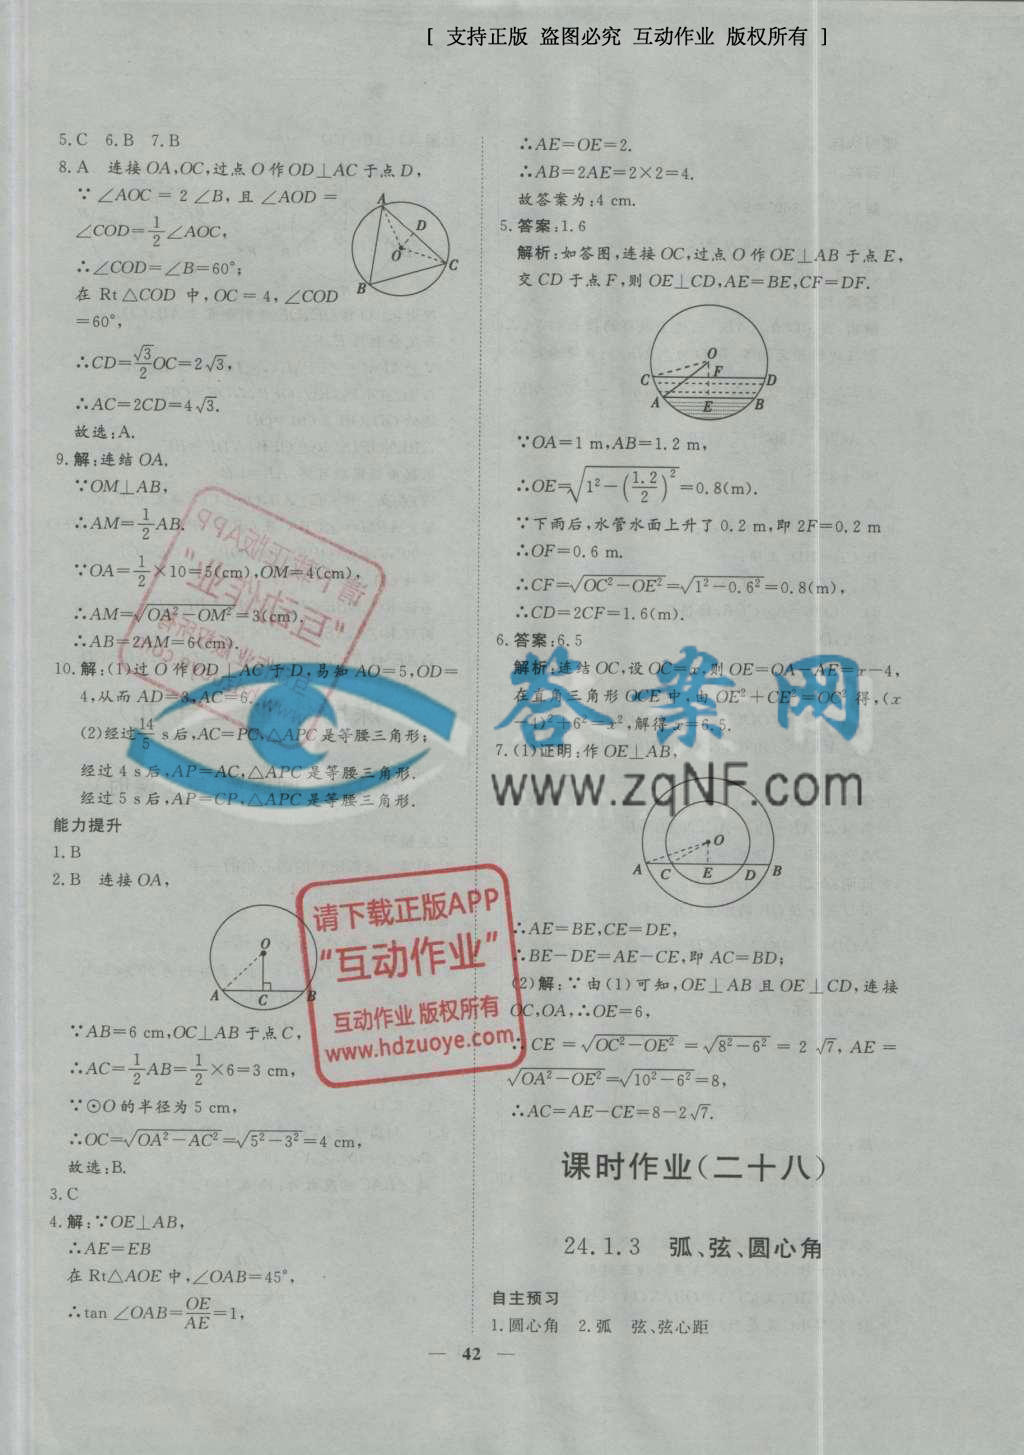 [ 支持正版 盗图必究 互动作业 版权所有 ]
5. C 6. B 7. B
8. A 连接 OA,OC,过点 O 作 OD⊥AC 于点 D,
∵∠AOC = 2∠B,且∠AOD =
∠COD=1/2∠AOC,
∴∠COD=∠B=60°;
在 Rt△COD 中,OC=4,∠COD
=60°,
∴CD=√3/2 OC=2√3,
∴AC=2CD=4√3.
故选:A.
A
D
O
C
B
9. 解:连结 OA.
∵OM⊥AB,
∴AM=1/2AB.
∵OA=1/2×10=5(cm),OM=4(cm),
∴AM=√(OA²-OM²)=3(cm).
∴AB=2AM=6(cm).
10. 解:(1)过 O 作 OD⊥AC 于 D,易知 AO=5,OD=
4,从而 AD=3,AC=6.
(2)经过14/5 s后,AC=PC,△APC是等腰三角形;
经过 4 s 后,AP=AC,△APC 是等腰三角形.
经过 5 s 后,AP=CP,△APC 是等腰三角形.
能力提升
1. B
2. B 连接 OA,
O
A C B
∵AB=6 cm,OC⊥AB 于点 C,
∴AC=1/2AB=1/2×6=3 cm,
∵⊙O 的半径为 5 cm,
∴OC=√(OA²-AC²)=√(5²-3²)=4 cm,
故选:B.
3. C
4. 解:∵OE⊥AB,
∴AE=EB
在 Rt△AOE 中,∠OAB=45°,
∴tan∠OAB=OE/AE=1,
∴AE=OE=2.
∴AB=2AE=2×2=4.
故答案为:4 cm.
5. 答案:1.6
解析:如答图,连接 OC,过点 O 作 OE⊥AB 于点 E,
交 CD 于点 F,则 OE⊥CD,AE=BE,CF=DF.
O
C F D
A E B
∵OA=1 m,AB=1.2 m,
∴OE=√(1²-(1.2/2)²)=0.8(m).
∵下雨后,水管水面上升了 0.2 m,即 2F=0.2 m
∴OF=0.6 m.
∴CF=√(OC²-OE²)=√(1²-0.6²)=0.8(m),
∴CD=2CF=1.6(m).
6. 答案:6.5
解析:连结 OC,设 OC=x,则 OE=OA-AE=x-4,
在直角三角形 OCE 中,由 OE²+CE²=OC² 得,(x
-4)²+6²=x²,解得 x=6.5.
7. (1)证明:作 OE⊥AB,
O
A C E D B
∴AE=BE,CE=DE,
∴BE-DE=AE-CE,即 AC=BD;
(2)解:∵由(1)可知,OE⊥AB 且 OE⊥CD,连接
OC,OA,∴OE=6,
∴CE=√(OC²-OE²)=√(8²-6²)=2√7,AE=
√(OA²-OE²)=√(10²-6²)=8,
∴AC=AE-CE=8-2√7.
课时作业(二十八)
24.1.3 弧、弦、圆心角
自主预习
1. 圆心角 2. 弧 弦、弦心距
— 42 —
请下载正版APP
“互动作业”
互动作业 版权所有
www.hdzuoye.com
答案网
www.zqNF.com